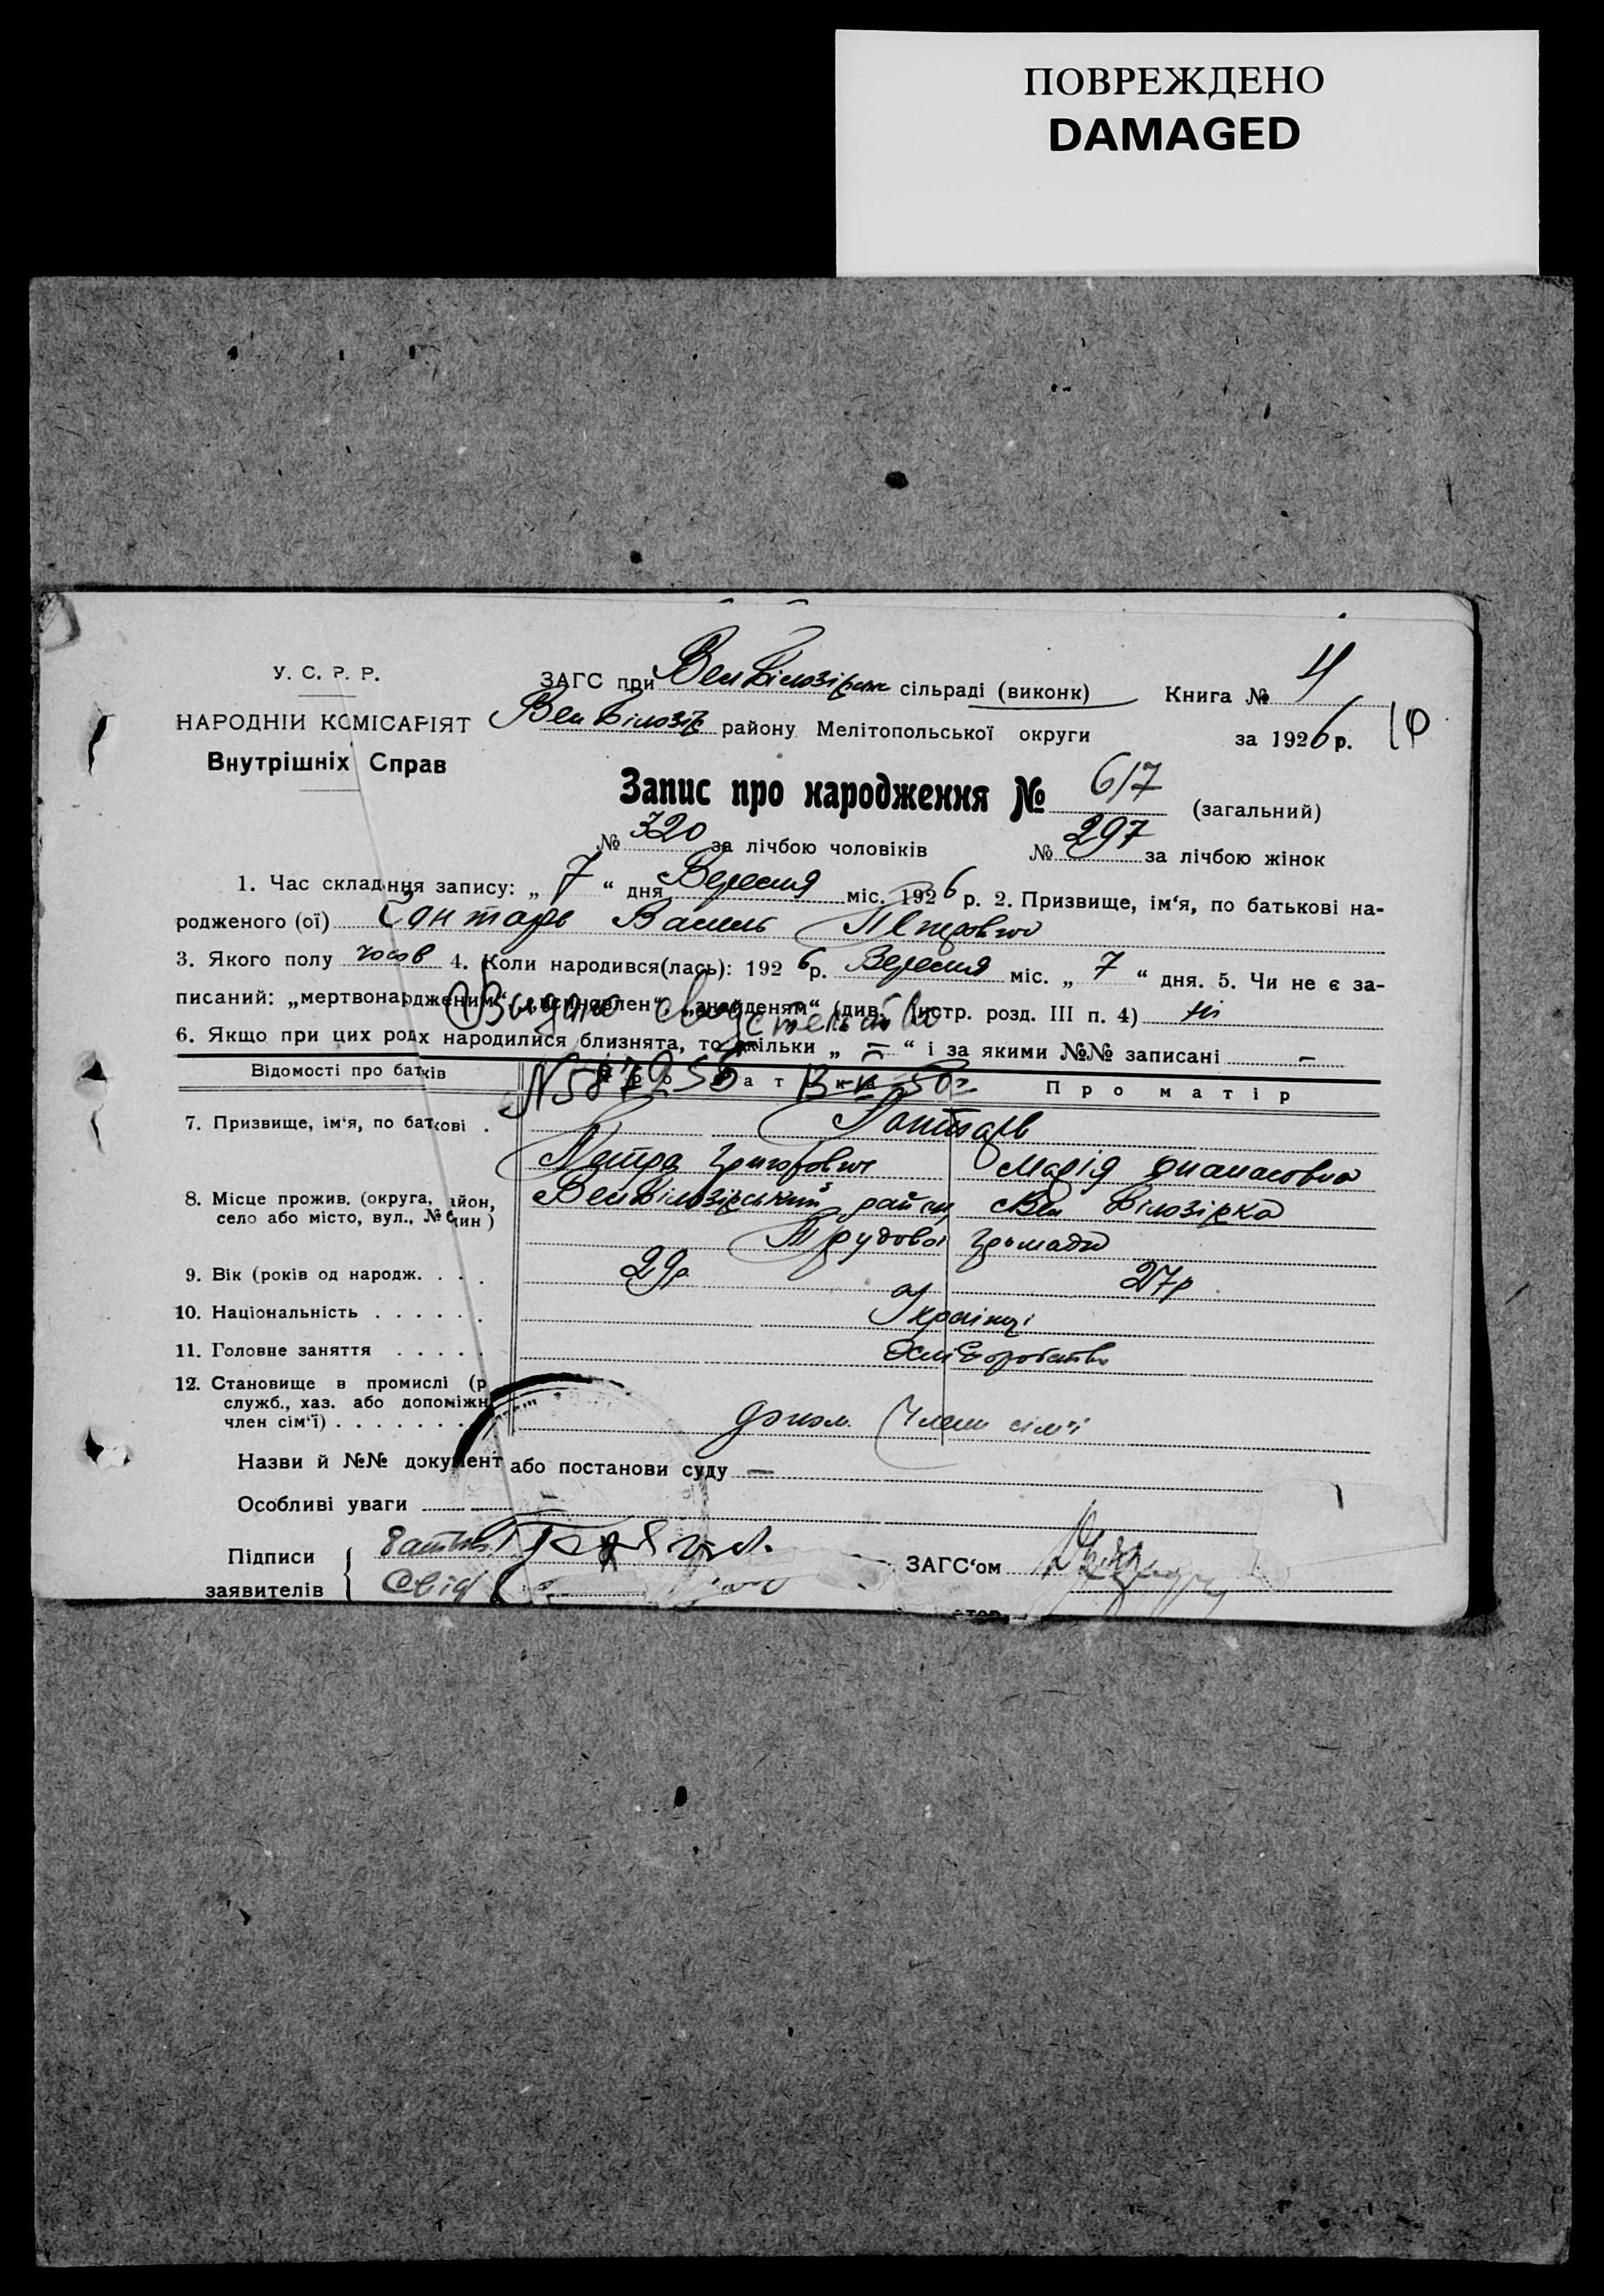 ПОВРЕЖДЕНО
DAMAGED
У. С. Р. Р.
НАРОДНІЙ КОМІСАРІЯТ
Внутрішніх Справ
ЗАГС при сільраді (виконк) Книга № 4
Вел Білозір району Мелітопольської округи за 1926 р.
Запис про народження № 617 (загальний)
№ 320 за лічбою чоловіків № 297 за лічбою жінок
1. Час складння запису: „ 7 “ дня Вересня міс. 1926 р. 2. Призвище, ім‘я, по батькові на-
родженого (ої) Василь Петрович
3. Якого полу чолов 4. Коли народився(лась): 1926 р. Вересня міс. „ 7 “ дня. 5. Чи не є за-
писаний: „мертвонародженим“, „знайденям“ (див. Інстр. розд. III п. 4) ні
Выдано свидетельство
6. Якщо при цих родх народилися близнята, то скільки „ — “ і за якими №№ записані —
Відомості про батків Про матір
7. Призвище, ім‘я, по баткові .
Петро Григорович Марія Опанасовна
8. Місце прожив. (округа, айон,
село або місто, вул., № )
ВелБілозірський район Вел Білозірка
Трудової громади
9. Вік (років од народж. . . . 29р 27р
10. Національність . . . . . . Українці
11. Головне заняття . . . . . Хліборобство
12. Становище в промислі (р
служб., хаз. або допоміжн
член сім‘ї) . . . . . . . допом. Члени сім'ї
Назви й №№ документ або постанови суду —
Особливі уваги —
Підписи
заявителів
ЗАГС‘ом